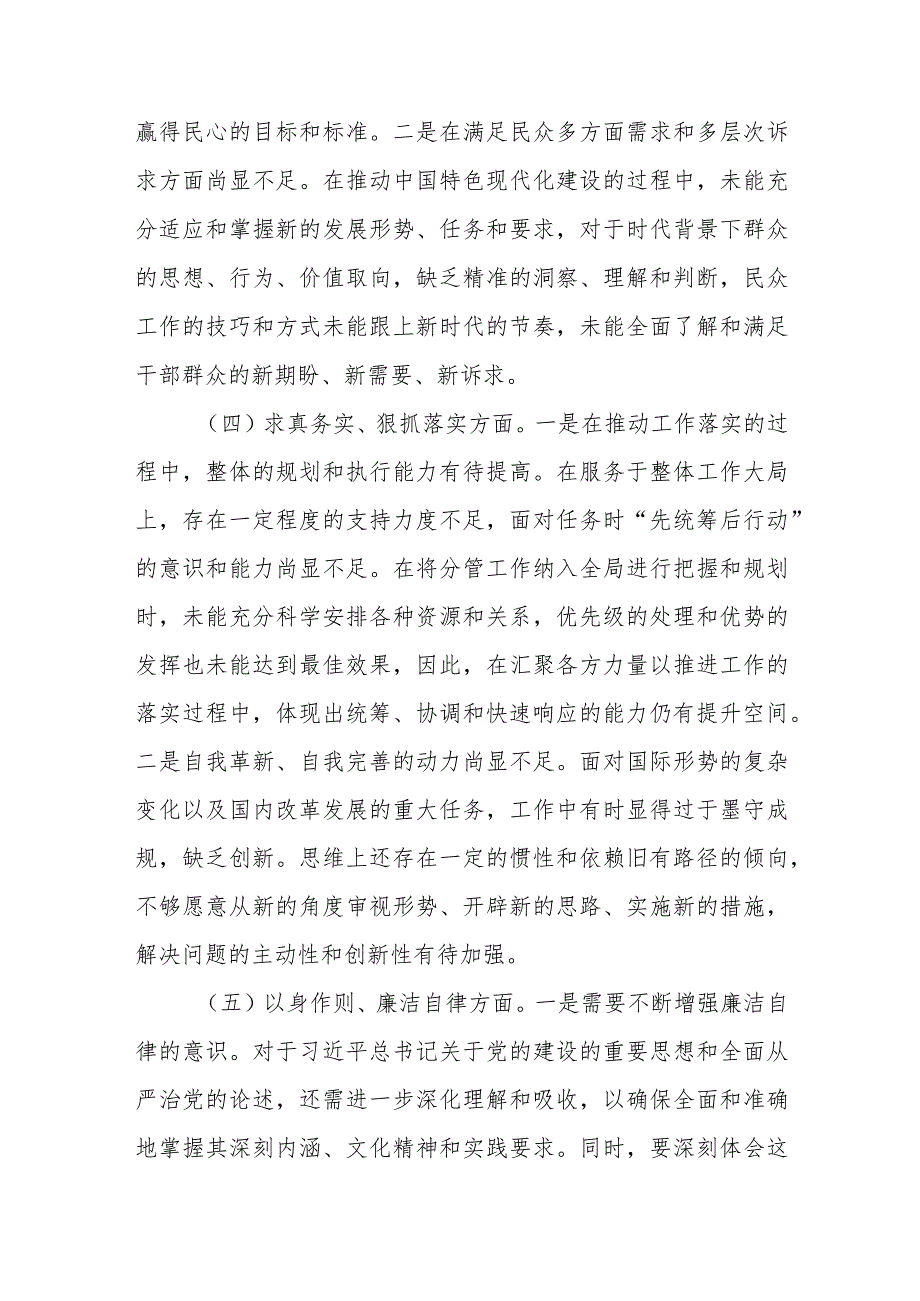 赢得民心的目标和标准。二是在满足民众多方面需求和多层次诉
求方面尚显不足。在推动中国特色现代化建设的过程中，未能充
分适应和掌握新的发展形势、任务和要求，对于时代背景下群众
的思想、行为、价值取向，缺乏精准的洞察、理解和判断，民众
工作的技巧和方式未能跟上新时代的节奏，未能全面了解和满足
干部群众的新期盼、新需要、新诉求。
（四）求真务实、狠抓落实方面。一是在推动工作落实的过
程中，整体的规划和执行能力有待提高。在服务于整体工作大局
上，存在一定程度的支持力度不足，面对任务时“先统筹后行动”
的意识和能力尚显不足。在将分管工作纳入全局进行把握和规划
时，未能充分科学安排各种资源和关系，优先级的处理和优势的
发挥也未能达到最佳效果，因此，在汇聚各方力量以推进工作的
落实过程中，体现出统筹、协调和快速响应的能力仍有提升空间。
二是自我革新、自我完善的动力尚显不足。面对国际形势的复杂
变化以及国内改革发展的重大任务，工作中有时显得过于墨守成
规，缺乏创新。思维上还存在一定的惯性和依赖旧有路径的倾向，
不够愿意从新的角度审视形势、开辟新的思路、实施新的措施，
解决问题的主动性和创新性有待加强。
（五）以身作则、廉洁自律方面。一是需要不断增强廉洁自
律的意识。对于习近平总书记关于党的建设的重要思想和全面从
严治党的论述，还需进一步深化理解和吸收，以确保全面和准确
地掌握其深刻内涵、文化精神和实践要求。同时，要深刻体会这